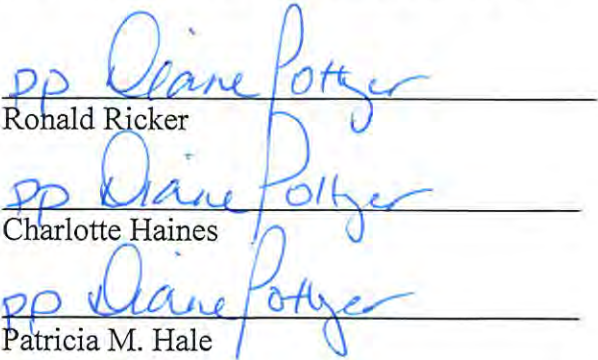 pp Diane Pottger
Ronald Ricker
pp Diane Pottger
Charlotte Haines
pp Diane Pottger
Patricia M. Hale